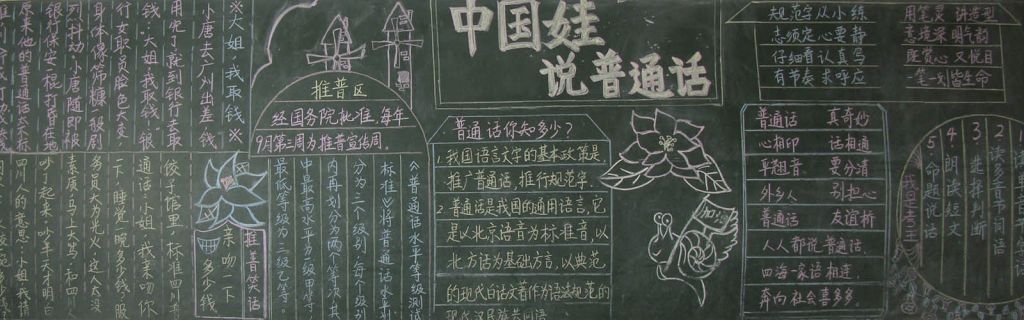 ※大姐，我取钱※
小唐去广州出差，钱
用完了，跑到银行去取
钱：“大姐我取钱。”银
行女职员脸色大变，
身体像筛糠一般剧
烈抖动，小唐随即被
银行保安一棍打昏在地
原来他的普通话太不标
推普区
经国务院批准，每年
9月第三周为推普宣传周。
推普笑话
亲吻一下
多少钱
饺子馆里，标准四川
通话：小姐，我亲吻你
一下，睡觉一晚多少钱？服
多员大为光火，这人太没
素质，马上大骂，和四川
吵了起来，吵半天才明白
四川人的意思：小姐，我请
《普通话水平等级测试
标准》将普通话水平划
分为三个级别，每个级别
内再划分为两个等次，其
中最高水平为一级甲等，
最低等级为三级乙等。
中国娃
说普通话
普通话你知多少？
1.我国语言文字的基本政策是
推广普通话，推行规范字。
2.普通话是我国的通用语言，它
是以北京语音为标准音，以
北方话为基础方言，以典范
的现代白话文著作为语法规范的
现代汉民族共同语
加油
规范字从小练
志须定心要静
仔细看认真写
有节奏求呼应
用笔灵 讲造型
座赏心 又悦目
一笔一划皆生命
普通话 真奇妙
心相印 话相通
平翘音 要分清
外乡人 别担心
普通话 友谊桥
人人都说普通话
四海一家语相连
奔向社会喜多多
2.读多音节词语
3.选择判断
4.朗读短文
5.命题说话